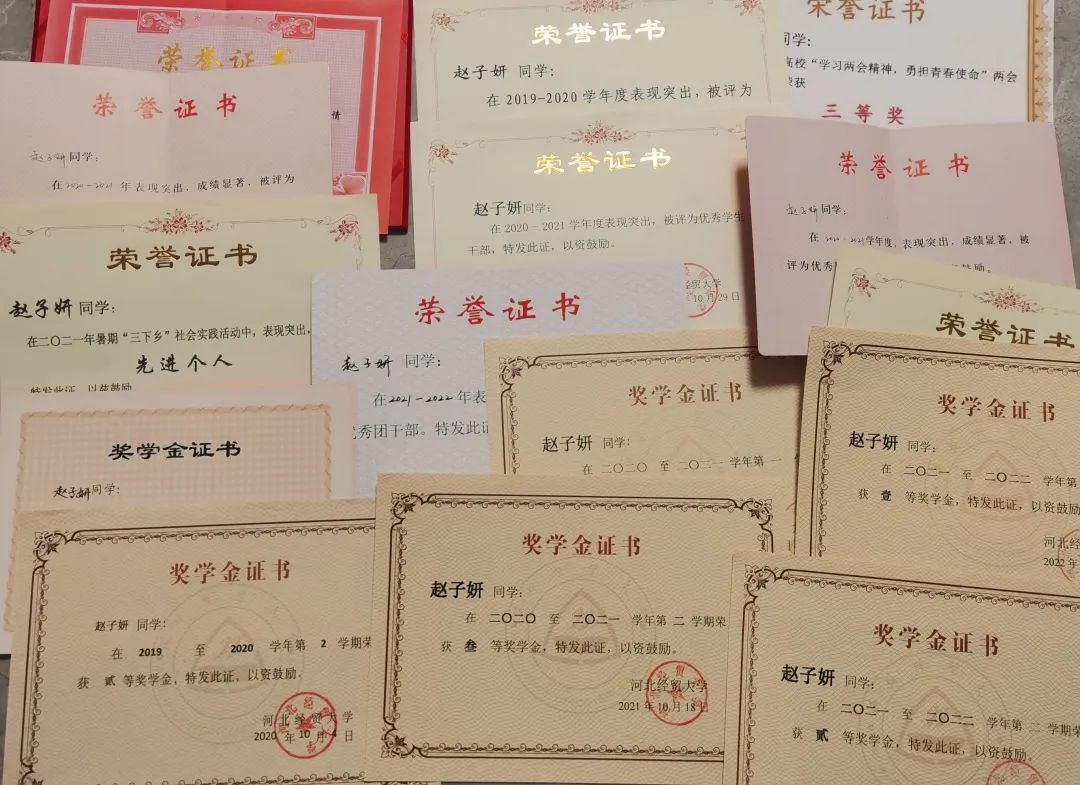 荣誉证书
情
荣誉证书
赵子妍同学:
在2020-2021年表现突出,成绩显著,被评为
荣誉证书
赵子妍 同学:
在 2019-2020 学年度表现突出,被评为
荣誉证书
同学:
高校“学习两会精神,勇担青春使命”两会
荣获
三等奖
荣誉证书
赵子妍同学:
在 2020-2021学年度表现突出,被评为优秀学生
干部,特发此证,以资鼓励。
经贸大学
10月29日
荣誉证书
赵子妍同学:
学年度,表现突出,成绩显著,被
评为优秀
励。
荣誉证书
赵子妍 同学:
在二〇二一年暑期“三下乡”社会实践活动中,表现突出,
先进个人
特发此证,以兹鼓励
荣誉证书
赵子妍 同学:
在2021-2022年表
优秀团干部。特发此证
荣誉证书
奖学金证书
赵子妍同学:
奖学金证书
赵子妍 同学:
在 二〇二〇 至 二〇二一 学年第 一
奖学金证书
赵子妍 同学:
在 二〇二一 至 二〇二二 学年第
获 壹 等奖学金,特发此证,以资鼓励
河北经
2022 年
奖学金证书
赵子妍 同学:
在 2019 至 2020 学年第 2 学期荣
获 贰 等奖学金,特发此证,以资鼓励。
河北经贸大学
2020 年 10 月 4 日
奖学金证书
赵子妍 同学:
在 二〇二〇 至 二〇二一 学年第 二 学期荣
获 叁 等奖学金,特发此证,以资鼓励。
河北经贸大学
2021 年 10 月 18 日
奖学金证书
赵子妍 同学:
在 二〇二一 至 二〇二二 学年第 二 学期荣
获 贰 等奖学金,特发此证,以资鼓励。